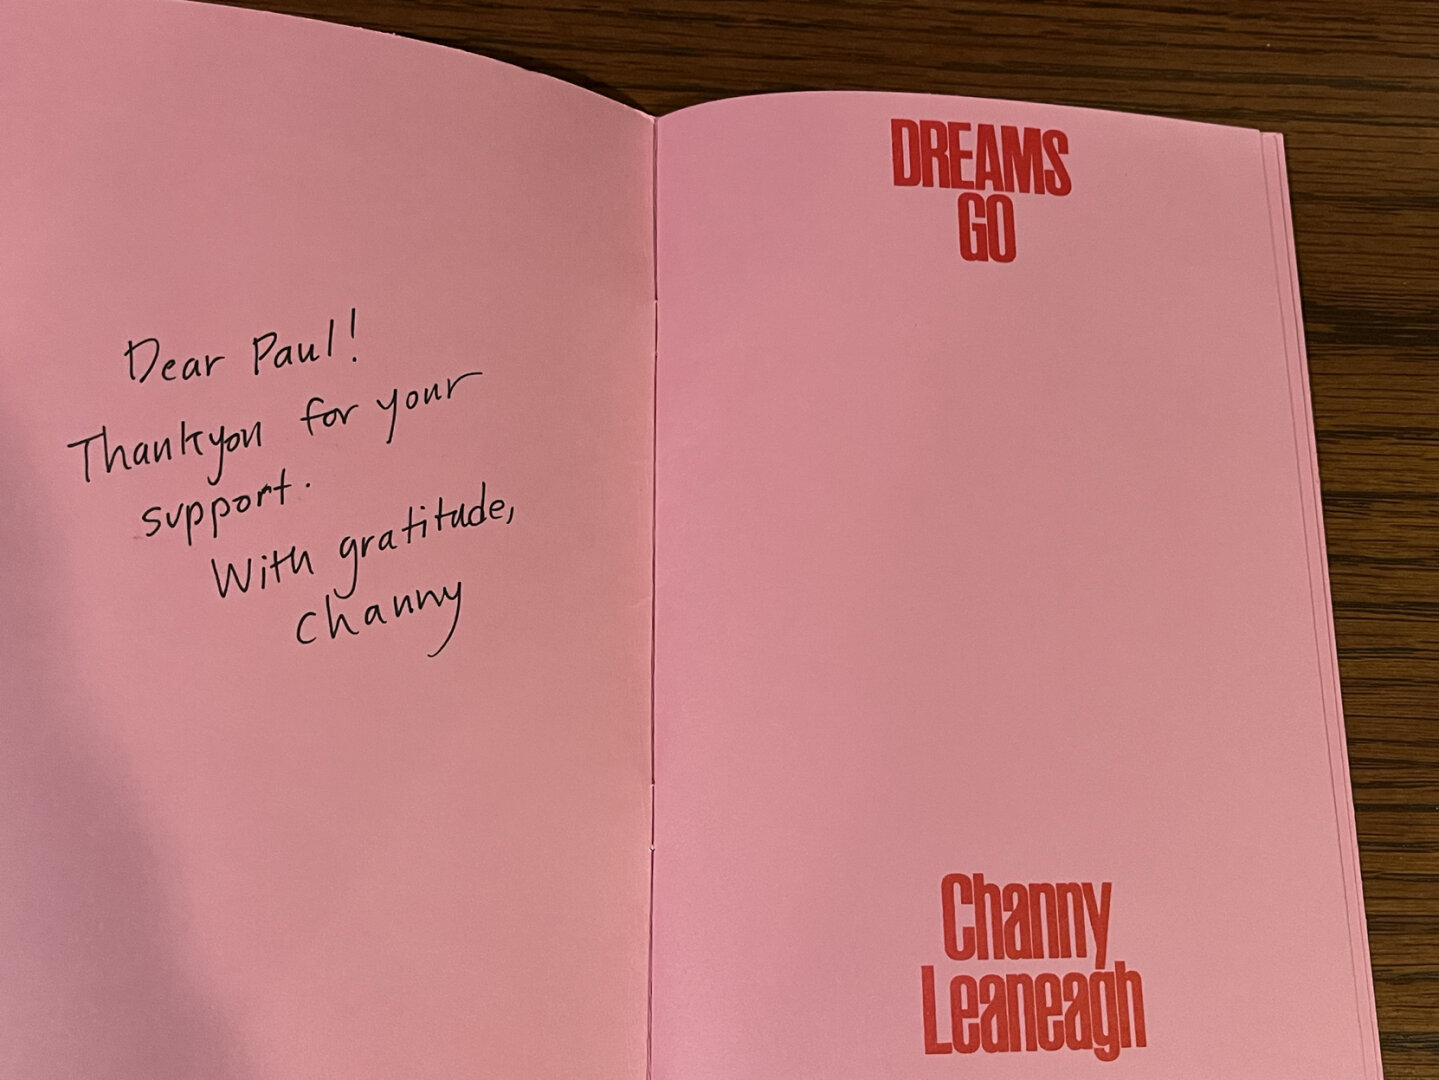 Dear Paul!
Thankyou for your
support.
With gratitude,
Channy
DREAMS
GO
Channy
Leaneagh